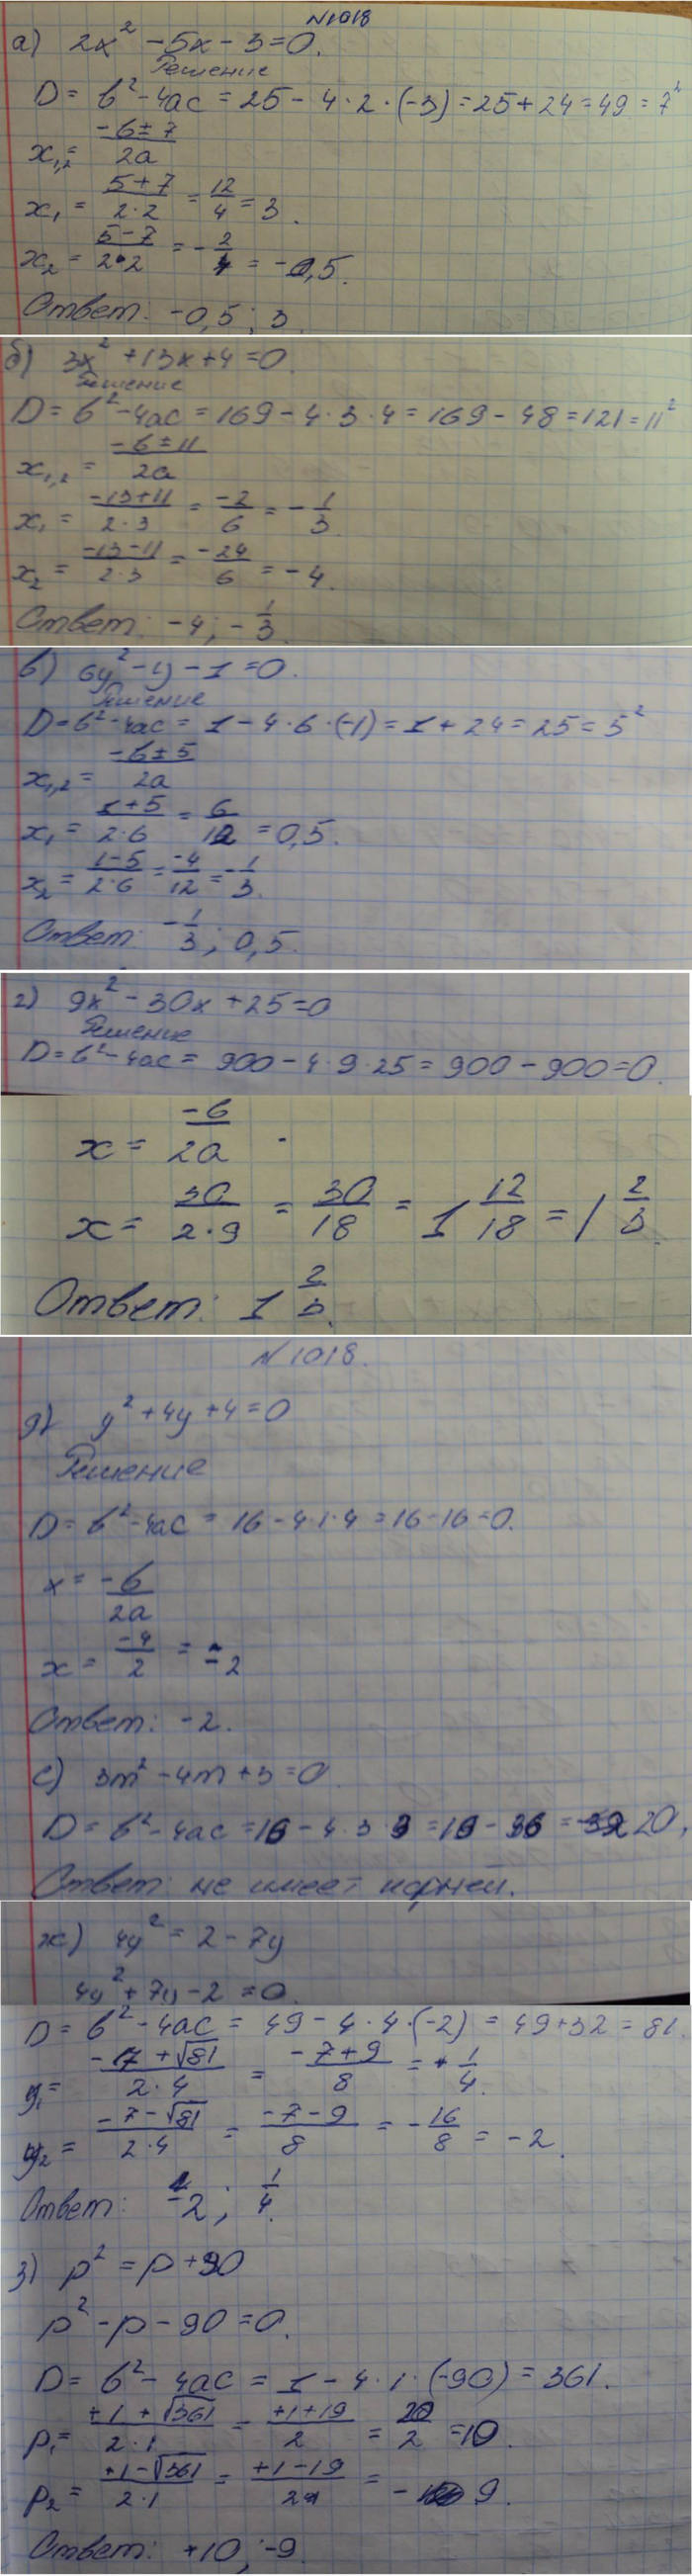 N1018
а) 2x² - 5x - 3 = 0.
Решение
D = b² - 4ac = 25 - 4·2·(-3) = 25 + 24 = 49 = 7²
x₁,₂ = (-b ± 7)/2a
x₁ = (5+7)/(2·2) = 12/4 = 3.
x₂ = (5-7)/(2·2) = -2/4 = -0,5.
Ответ: -0,5; 3
б) 3x² + 13x + 4 = 0.
Решение
D = b² - 4ac = 169 - 4·3·4 = 169 - 48 = 121 = 11²
x₁,₂ = (-b ± 11)/2a
x₁ = (-13+11)/(2·3) = -2/6 = -1/3
x₂ = (-13-11)/(2·3) = -24/6 = -4.
Ответ: -4; -1/3.
в) 6y² - y - 1 = 0.
Решение
D = b² - 4ac = 1 - 4·6·(-1) = 1 + 24 = 25 = 5²
x₁,₂ = (-b ± 5)/2a
x₁ = (1+5)/(2·6) = 6/12 = 0,5.
x₂ = (1-5)/(2·6) = -4/12 = -1/3.
Ответ: -1/3; 0,5.
г) 9x² - 30x + 25 = 0
Решение
D = b² - 4ac = 900 - 4·9·25 = 900 - 900 = 0.
x = -b/2a.
x = 30/(2·9) = 30/18 = 1 12/18 = 1 2/3.
Ответ: 1 2/3.
N1018.
д) y² + 4y + 4 = 0
Решение
D = b² - 4ac = 16 - 4·1·4 = 16 - 16 = 0.
x = -b/2a
x = -4/2 = -2
Ответ: -2.
е) 3m² - 4m + 3 = 0.
D = b² - 4ac = 16 - 4·3·3 = 16 - 36 = 20.
Ответ: не имеет корней.
ж) 4y² = 2 - 7y
4y² + 7y - 2 = 0.
D = b² - 4ac = 49 - 4·4·(-2) = 49 + 32 = 81.
y₁ = (-7 + √81)/(2·4) = (-7+9)/8 = + 1/4.
y₂ = (-7 - √81)/(2·4) = (-7-9)/8 = -16/8 = -2.
Ответ: -2; 1/4.
з) p² = p + 90
p² - p - 90 = 0.
D = b² - 4ac = 1 - 4·1·(-90) = 361.
p₁ = (+1 + √361)/(2·1) = (+1+19)/2 = 20/2 = 10.
p₂ = (+1 - √361)/(2·1) = (+1-19)/2 = -9.
Ответ: +10; -9.